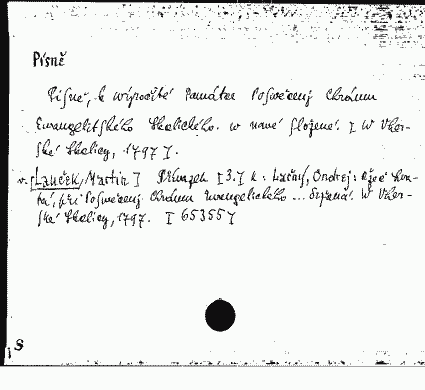 Písně
Písně, k weypočté Památce Poswěcenj Chrámu
Ewangelitského Skalického. w nowé složené. [ W Uher-
ské Skalicy, 1797 ].
v. [Lauček, Martin] Přívazek [3.] k: Lačný, Ondrej: Řeč kro-
tká, při Poswěcenj Chrámu Ewangelického ... držaná. W Uher-
ské Skalicy, 1797. [ 65355 ]
S